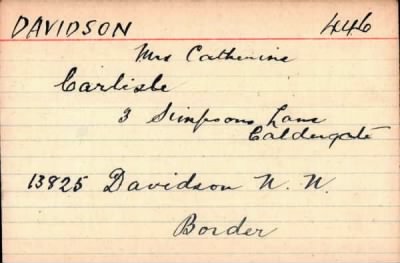 DAVIDSON 446
Mrs Catherine
Carlisle
3 Simpsons Lane
Caldergate
13825 Davidson N. N.
Border